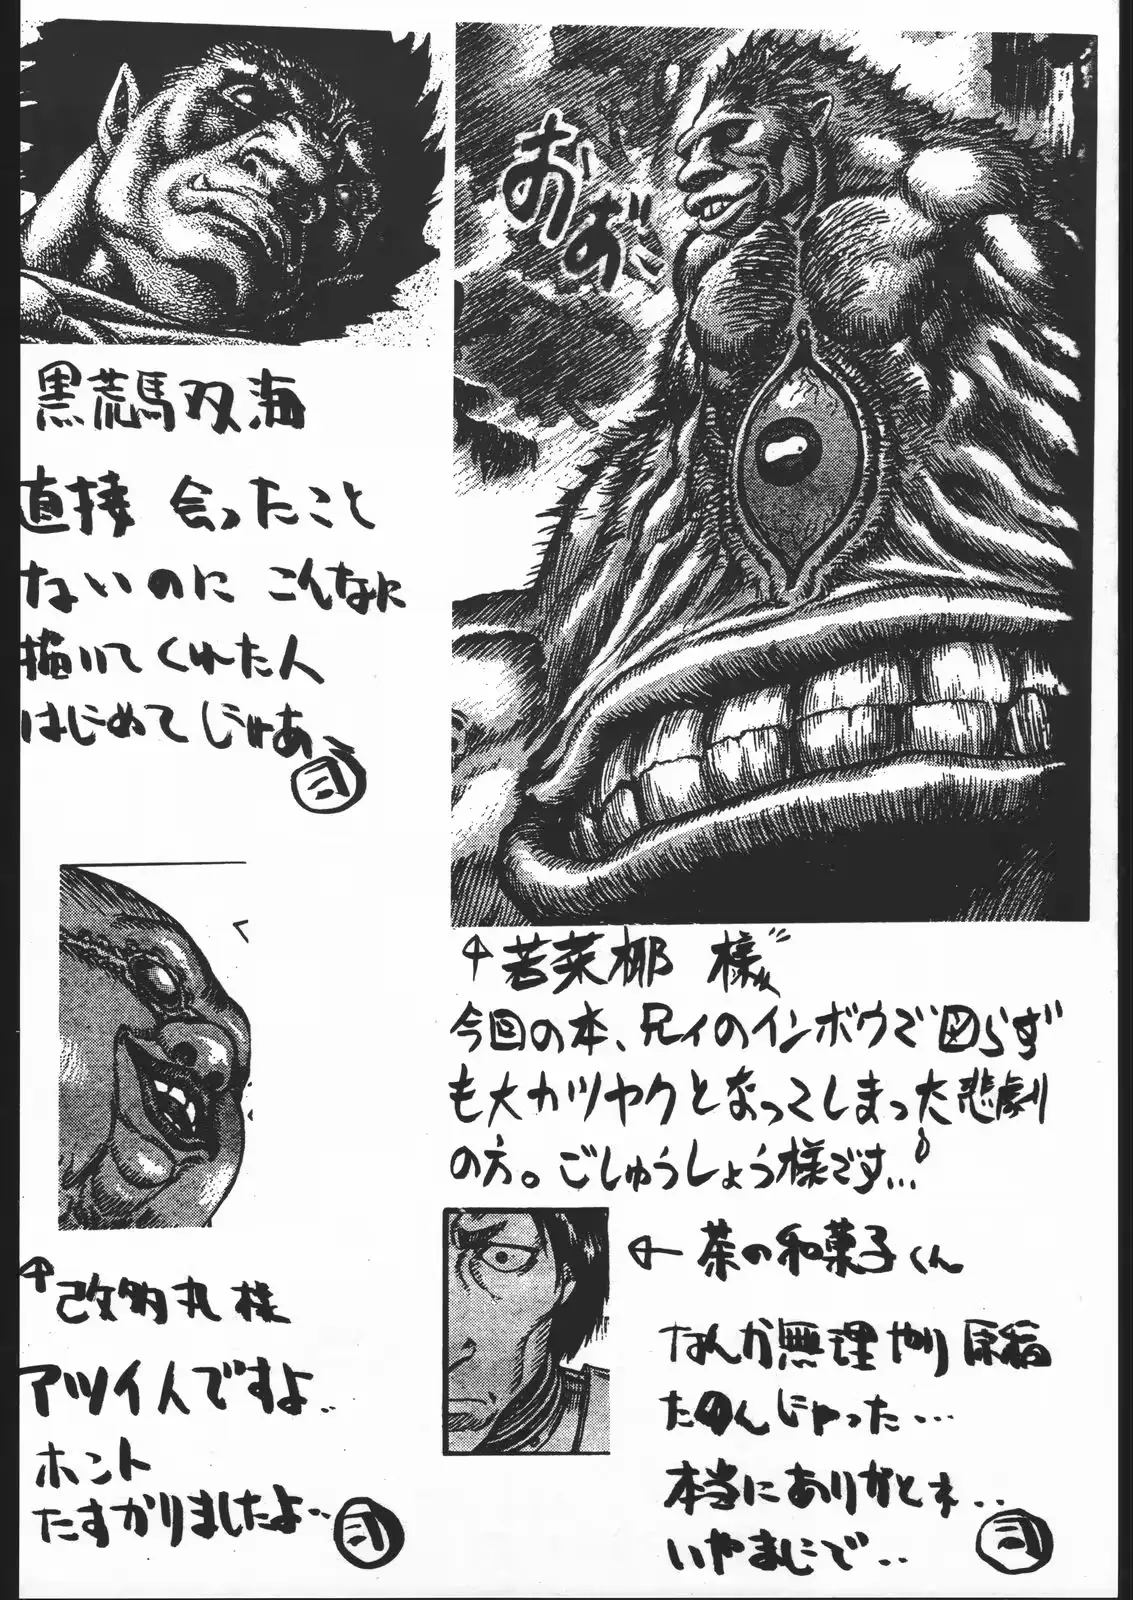 おおお…
黒荒馬双海
直接 会ったこと
ないのに こんなに
描いてくれた人
はじめてじゃあ〜
弐
↑苦菜椰 様〃
今回の本、兄ィのインボウで図らず
も大カツヤクとなってしまった悲劇
の方。ごしゅうしょう様です…
↑改的丸様
アツイ人ですよ..
ホント
たすかりましたよ…
弐
←茶の和菓子くん
なんか無理やり原稿
たのんじゃった…
本当にありがとネ..
いやまじで..
弐